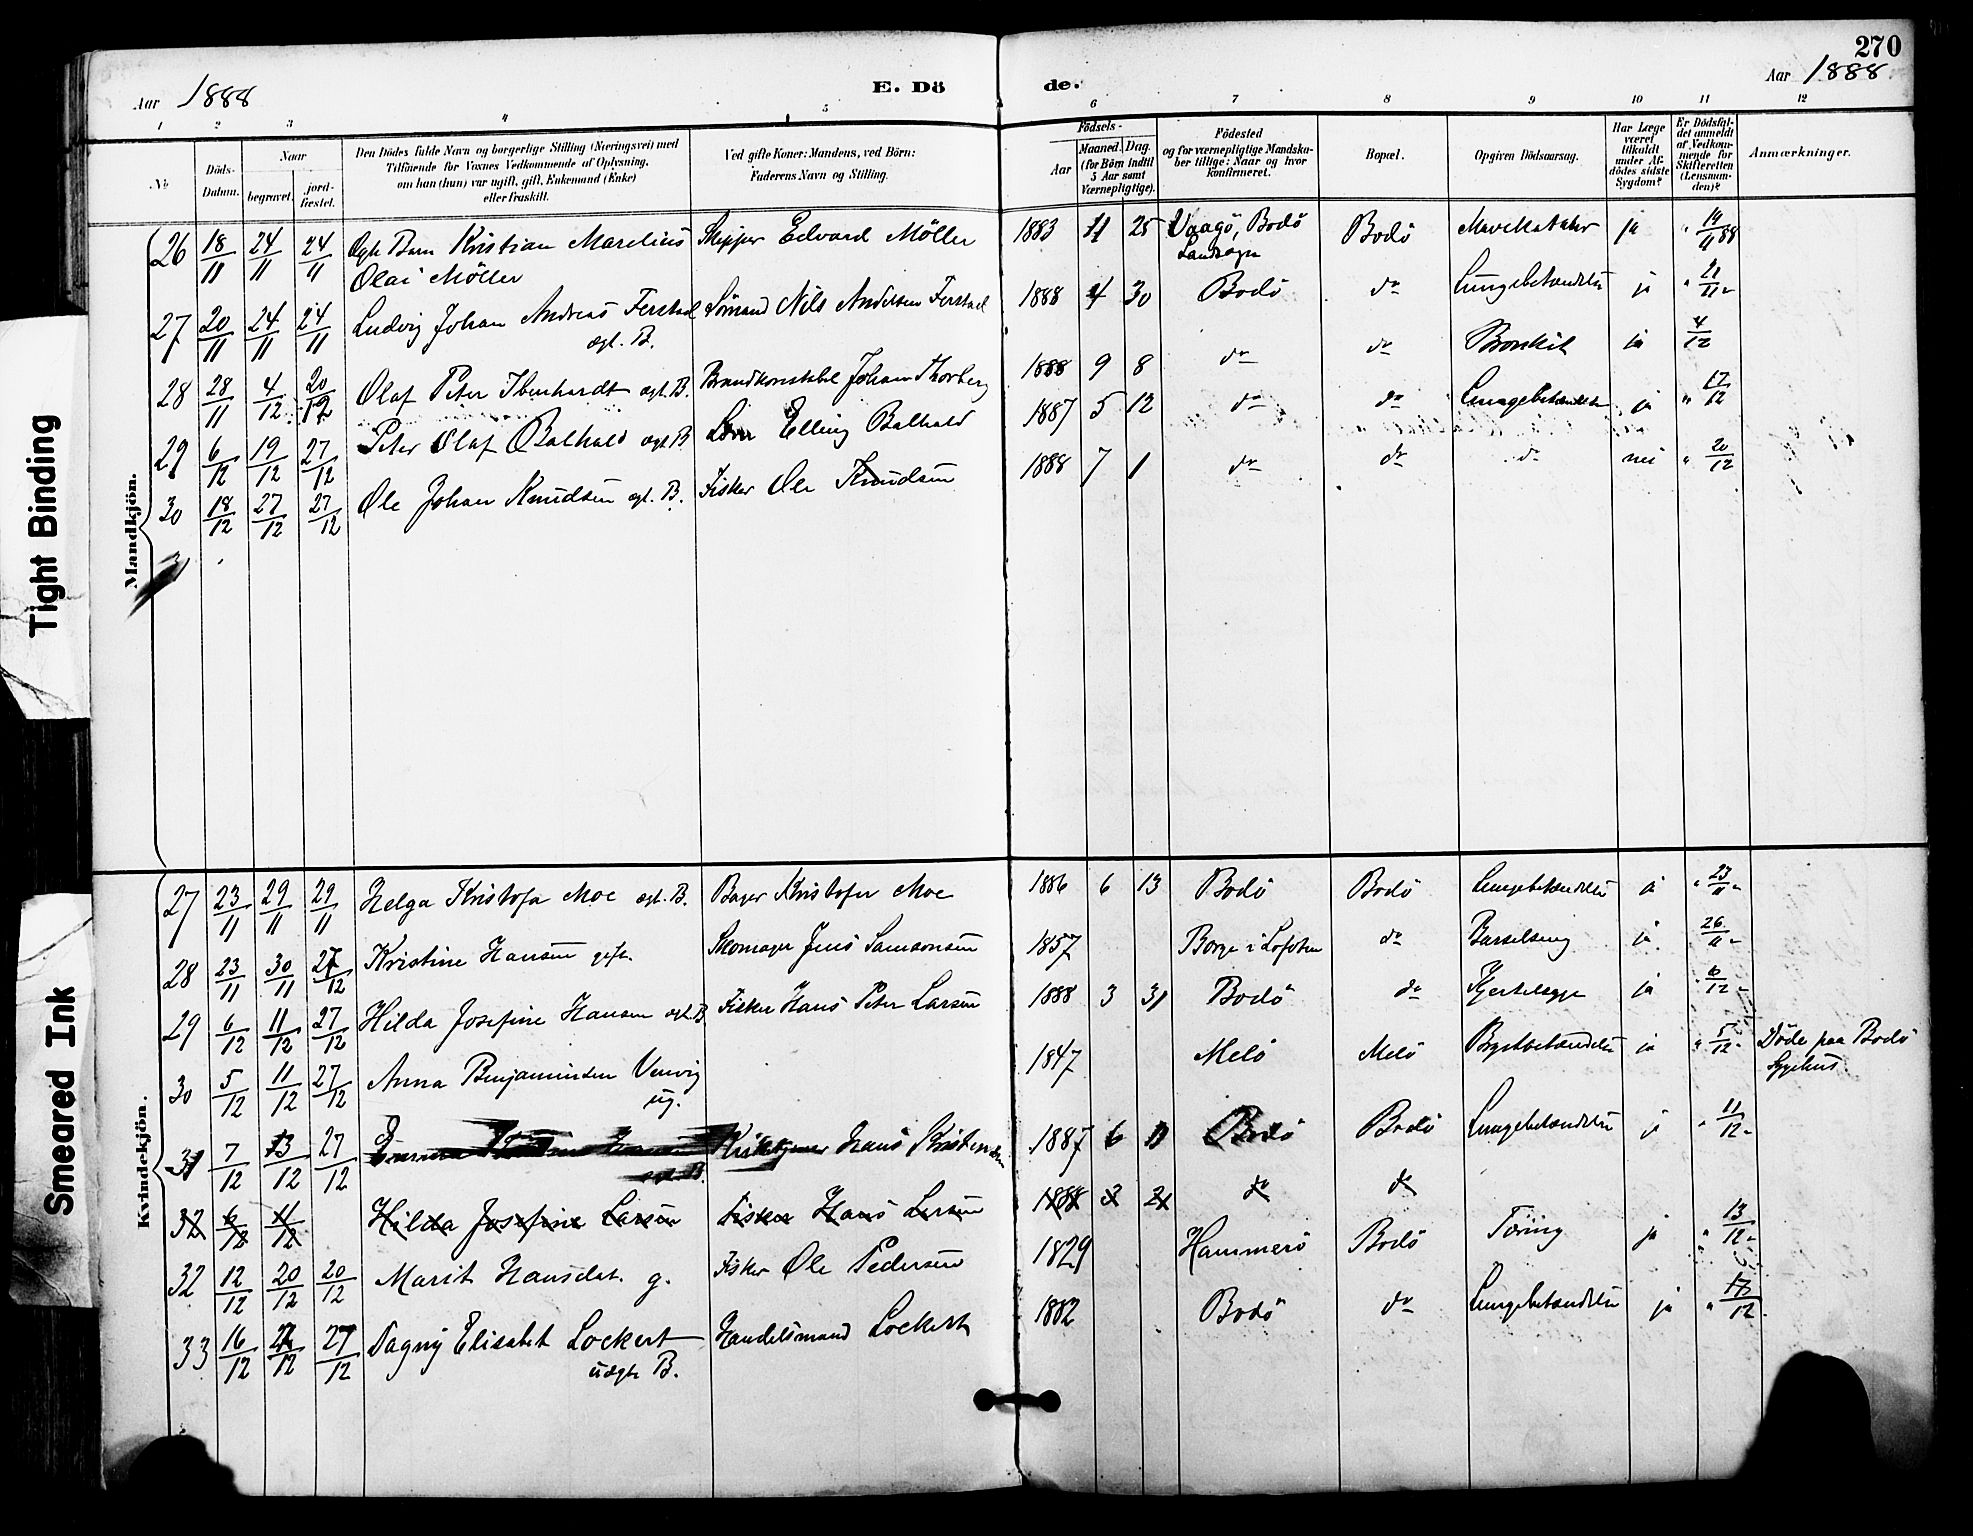 270
Aar 1888
E. Dö de.
Aar 1888
1 2 3 4 5 6 7 8 9 10 11 12
No
Döds-Datum.
Naar
begravet.
jord-fæstet.
Den Dödes fulde Navn og borgerlige Stilling (Næringsvei) med
Tilföiende for Voxnes Vedkommende af Oplysning,
om han (hun) var ugift, gift, Enkemand (Enke)
eller fraskilt.
Ved gifte Koner: Mandens, ved Börn:
Faderens Navn og Stilling.
Födsels-
Aar
Maaned. Dag.
(for Börn indtil
5 Aar samt
Værnepligtige).
Födested
og for værnepligtige Mandska-
ber tillige: Naar og hvor
konfirmeret.
Bopæl.
Opgiven Dödsaarsag.
Har Læge
været
tilkaldt
under Af-
dödes sidste
Sygdom?
Er Dödsfal-
det anmeldt
af Vedkom-
mende for
Skifteretten
(Lensman-
den)?
Anmærkninger.
Mandkjön.
26 18/11 24/11 24/11 Ægte Barn Kristian Marelius Skipper Edvard Möller 1883 11 25 Vaagö, Bodö Bodö Mavekatahr ja " 19/11 88
Olai Möller Landsogn
27 20/11 24/11 24/11 Ludvig Johan Andreas Ferstad Sömand Nils Andersen Ferstad 1888 4 30 Bodö do Lungebetændelse ja " 21/11 "
ægt. B.
28 28/11 4/12 20/12 Olaf Peter Ibenhardt ægt. B. Brandkonstabel Johan Thorberg 1888 9 8 do do Bronkit ja 4/12
29 6/12 19/12 27/12 Peter Olaf Balhald ægt B Elling Balhald 1887 5 12 do do Lungebetændelse ja " 17/12
30 18/12 27/12 27/12 Ole Johan Knudsen ægt. B. Fisker Ole Knudsen 1888 7 1 do do do nei " 20/12
31
Kvindekjön.
27 23/11 29/11 29/11 Helga Kristofa Moe ægt. B. Bager Kristofer Moe 1886 6 13 Bodö Bodö Lungebetændelse ja " 23/11 "
28 23/11 30/11 27/12 Kristine Hansen gift. Skomager Jens Samsonsen 1857 Borge i Lofoten do Barselseng ja 26/11 "
29 6/12 11/12 27/12 Hilda Josefine Hansen ægt. B. Fisker Hans Peter Larsen 1888 3 31 Bodö do Kjertelsyge ja 6/12 "
30 5/12 11/12 27/12 Anna Benjaminsen Venvig 1847 Melö Melö Brystbetændelse ja " 5/12 " Döde paa Bodö
ug. Sygehus
31 7/12 13/12 27/12 Hans Kristensen 1887 6 11 Bodö Bodö Lungebetændelse ja " 11/12 "
ægt. B.
32 6/12 11/12 Hilda Josefine Larsen Fisker Hans Larsen 1888 3 21 do do
32 12/12 20/12 20/12 Marit Hansdat. g. Fisker Ole Pedersen 1829 Hammerö Bodö Tæring ja " 13/12 "
33 16/12 27/12 27/12 Dagny Elisabet Lockert Handelsmand Lockert 1882 Bodö do Lungebetændelse ja " 17/12
uægte B.
Tight Binding
Smeared Ink